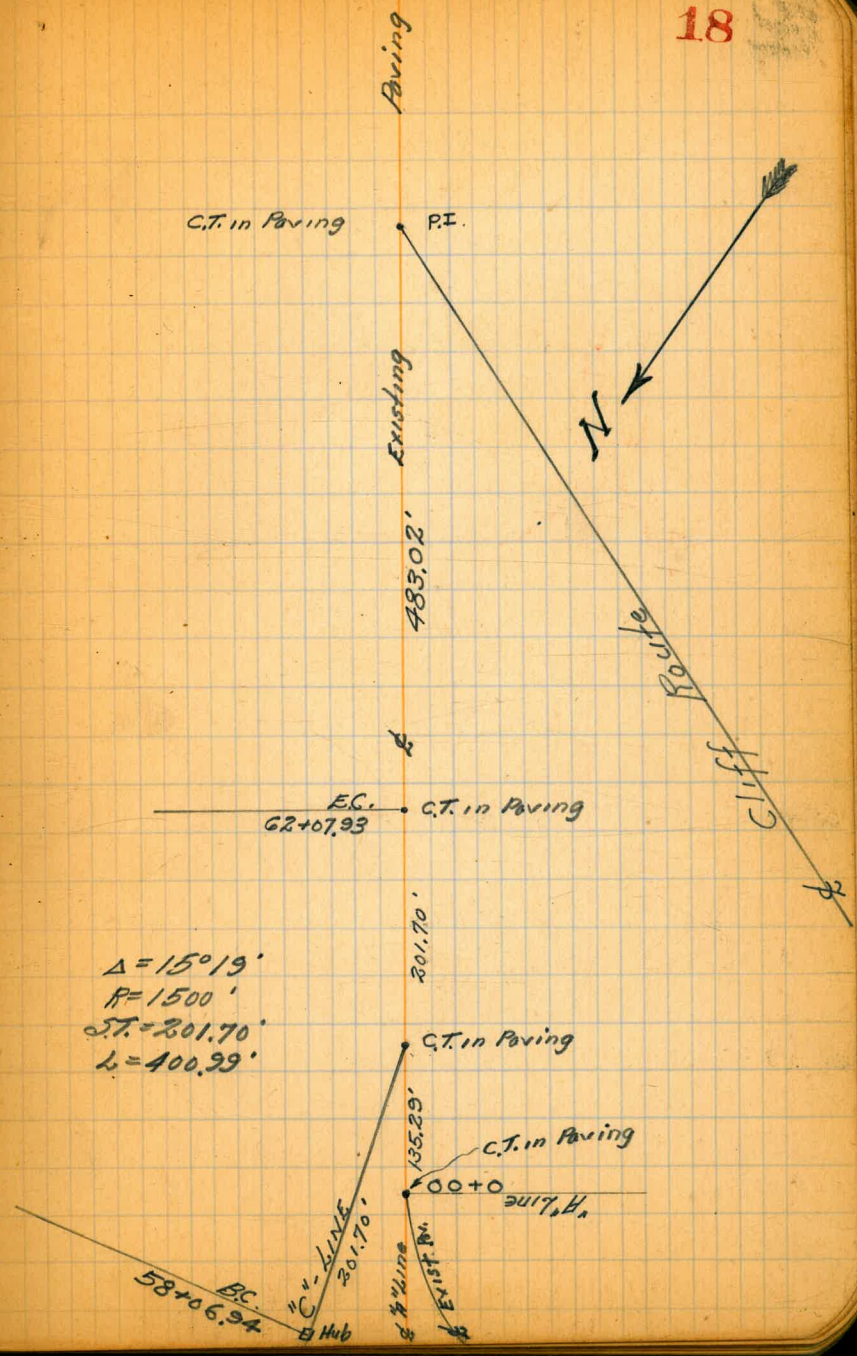 18
Paving
C.T. in Paving
P.I.
N
Existing
483.02'
Route
Cliff
℄
℄
E.C.
62+07.93
C.T. in Paving
201.70'
Δ=15°19'
R=1500'
S.T.=201.70'
L=400.99'
C.T. in Paving
135.29'
C.T. in Paving
0+00
"A" Line
"C"-LINE
201.70'
B.C.
58+06.94
Hub
℄ "A" Line
Exist. Pav.
℄